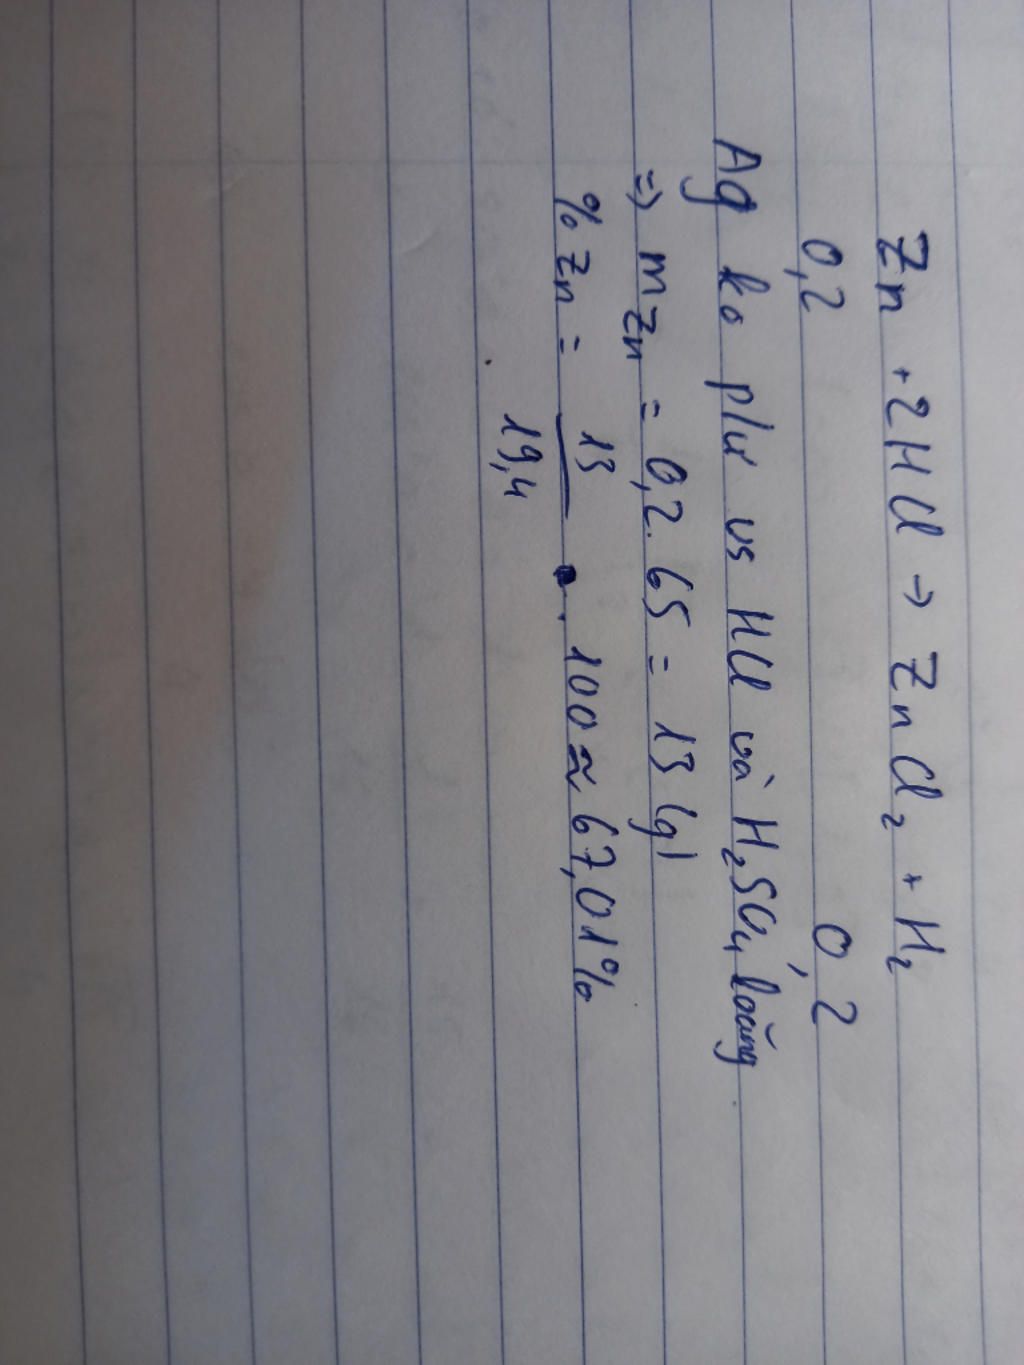 Zn + 2HCl → ZnCl₂ + H₂
0,2 0,2
Ag ko pứ vs HCl và H₂SO₄ loãng
=> m Zn = 0,2 . 65 = 13 (g)
% Zn = 13 / 19,4 . 100 ≈ 67,01%